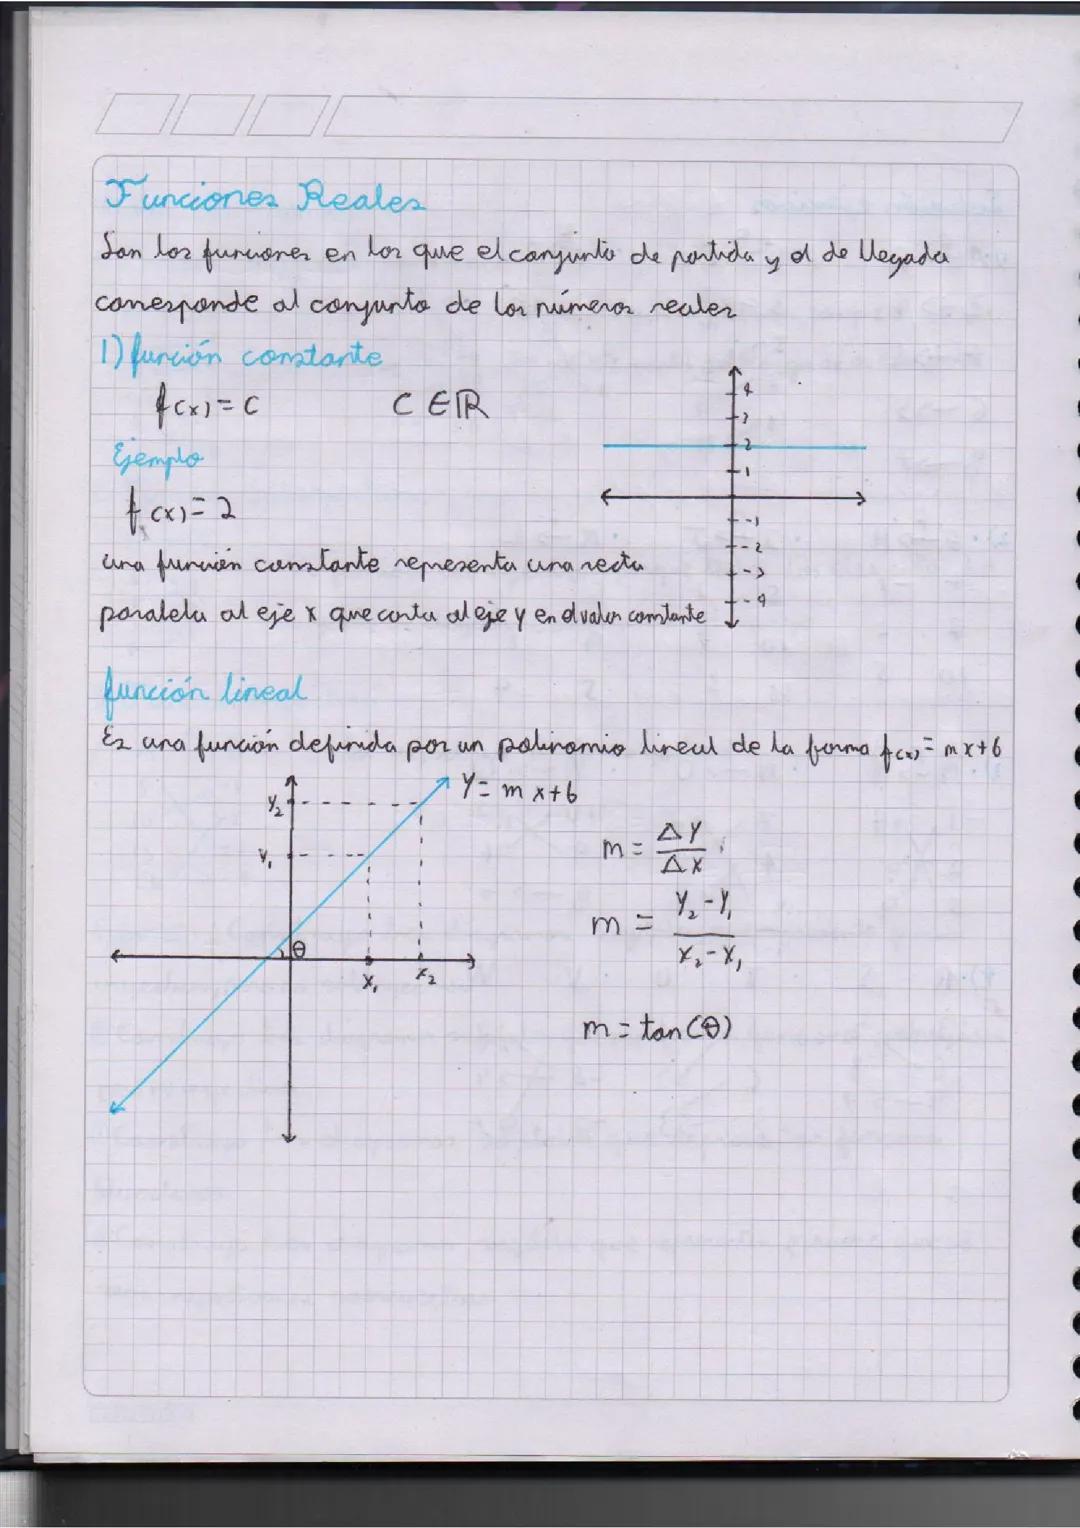 Funciones Reales
Son las funciones en las que el conjunto de partida y el de llegada
corresponde al conjunto de los números reales
1) función constante
f(x) = C C ∈ ℝ
Ejemplo
f(x) = 2
una función constante representa una recta
paralela al eje x que corta al eje y en el valor constante
4
3
2
1
-1
-2
-3
-4
función lineal
Es una función definida por un polinomio lineal de la forma f(x) = mx+b
y = mx+b
y₂
y₁
θ
x₁ x₂
m = Δy/Δx
m = y₂-y₁/x₂-x₁
m = tan(θ)